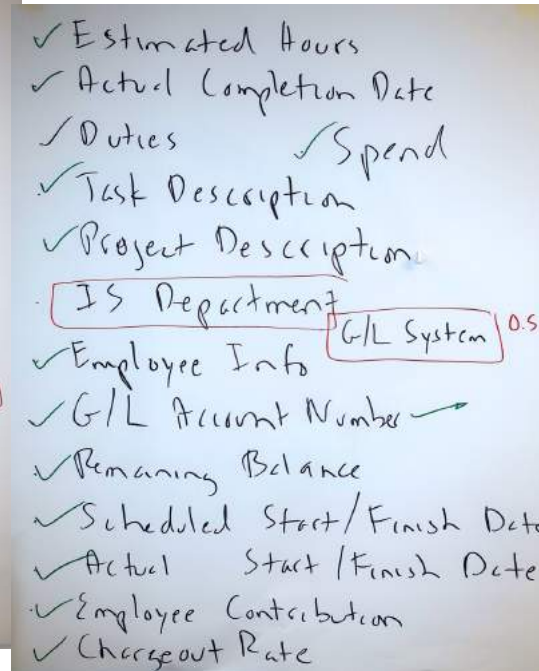 Estimated Hours
Actual Completion Date
Duties
Spend
Task Description
Project Description
IS Department
G/L System 0.5
Employee Info
G/L Account Number
Remaning Balance
Scheduled Start/Finish Date
Actual Start/Finish Date
Employee Contribution
Chargeout Rate